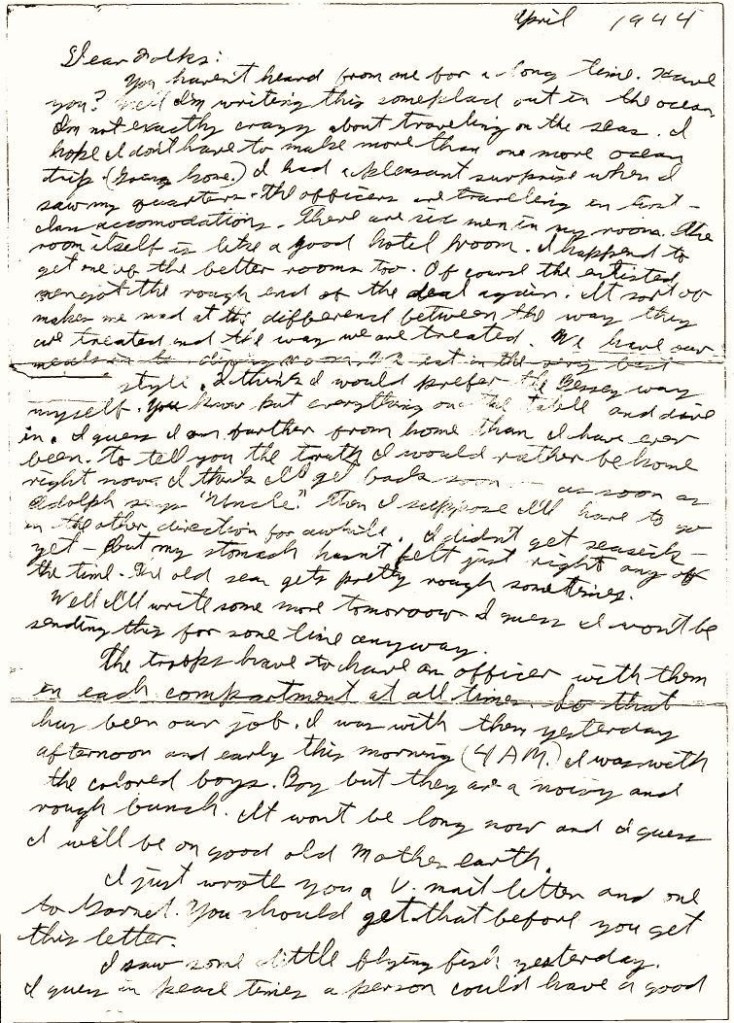 April 1944
Dear Folks:
You haven't heard from me for a long time. Have
you? Well I'm writing this someplace out in the ocean
I'm not exactly crazy about traveling on the seas. I
hope I don't have to make more than one more ocean
trip (Going home.) I had a pleasant surprise when I
saw my quarters. The officers are traveling in first-
class accomodations. There are six men in my room. The
room itself is like a good hotel room. I happend to
get one of the better rooms too. Of course the enlisted
men got the rough end of the deal again. It sort of
makes me mad at the difference between the way they
are treated and the way we are treated. We have our
meals in the dining room. We eat in the very best
style. I think I would prefer the way
myself. You know put everything on the table and dive
in. I guess I am further from home than I have ever
been. To tell you the truth I would rather be home
right now. I think I'll get back soon — as soon as
Adolph says "Uncle". Then I suppose I'll have to go
in the other direction for awhile. I didn't get seasick —
yet — but my stomach hasn't felt just right any of
the time. The old sea gets pretty rough sometimes.
Well I'll write some more tomorrow I guess I won't be
sending this for some time anyway.
The troops have to have an officer with them
in each compartment at all times. So that
has been our job. I was with them yesterday
afternoon and early this morning (4 AM.) I was with
the colored boys. Boy but they are a noisy and
rough bunch. It wont be long now and I guess
I will be on good old Mother earth.
I just wrote you a V. mail letter and one
to Garnet. You should get that before you get
this letter.
I saw some little flying fish yesterday.
I guess in peace times a person could have a good